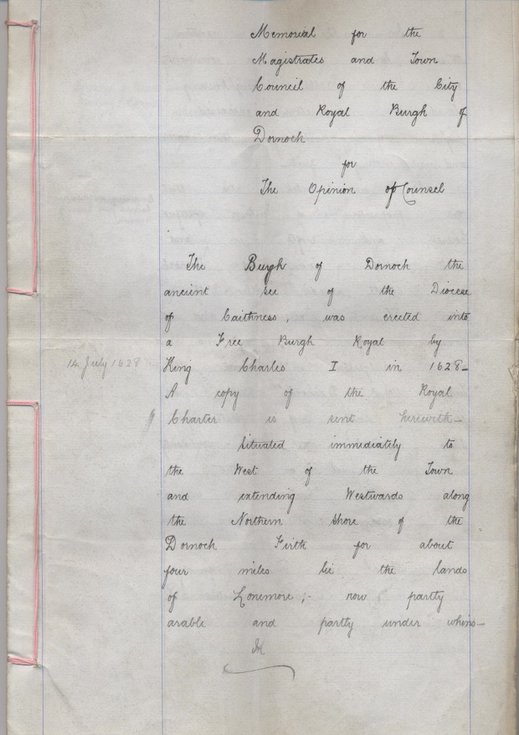 Memorial for the
Magistrates and Town
Council of the City
and Royal Burgh of
Dornoch
for
The Opinion of Counsel
The Burgh of Dornoch the
ancient see of the Diocese
of Caithness, was erected into
a Free Burgh Royal by
14 July 1628
King Charles I in 1628_
A copy of the Royal
Charter is sent herewith_
Situated immediately to
the West of the Town
and extending Westwards along
the Northern Shore of the
Dornoch Firth for about
four miles lie the lands
of Lonemore;- now partly
arable and partly under whins_